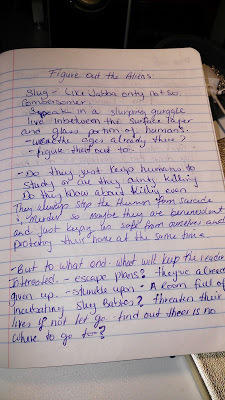 Figure out the Aliens:
Slug - Like Jabba only not so
combersomer.
Speack in a slurping guraggle
live inbetween the surface Paper
and glass portion of humans.
- were the ages already there?
- figure that out to -
- Do they Just keep humans to
study or are they aunts killing
Do they know about Killing even
They always stop the Human from suicide
+ Murder so Maybe they are benevolent
and Just keeping us safe from ourselves and
protcting their home at the same time.
- But to what end - what will keep the reader
Interested. - escape plans? they've already
given up. - stumble upon - A Room full of
incubating Slug Babies? threaten their
lives if not let go - find out theer is no
where to go to - ?